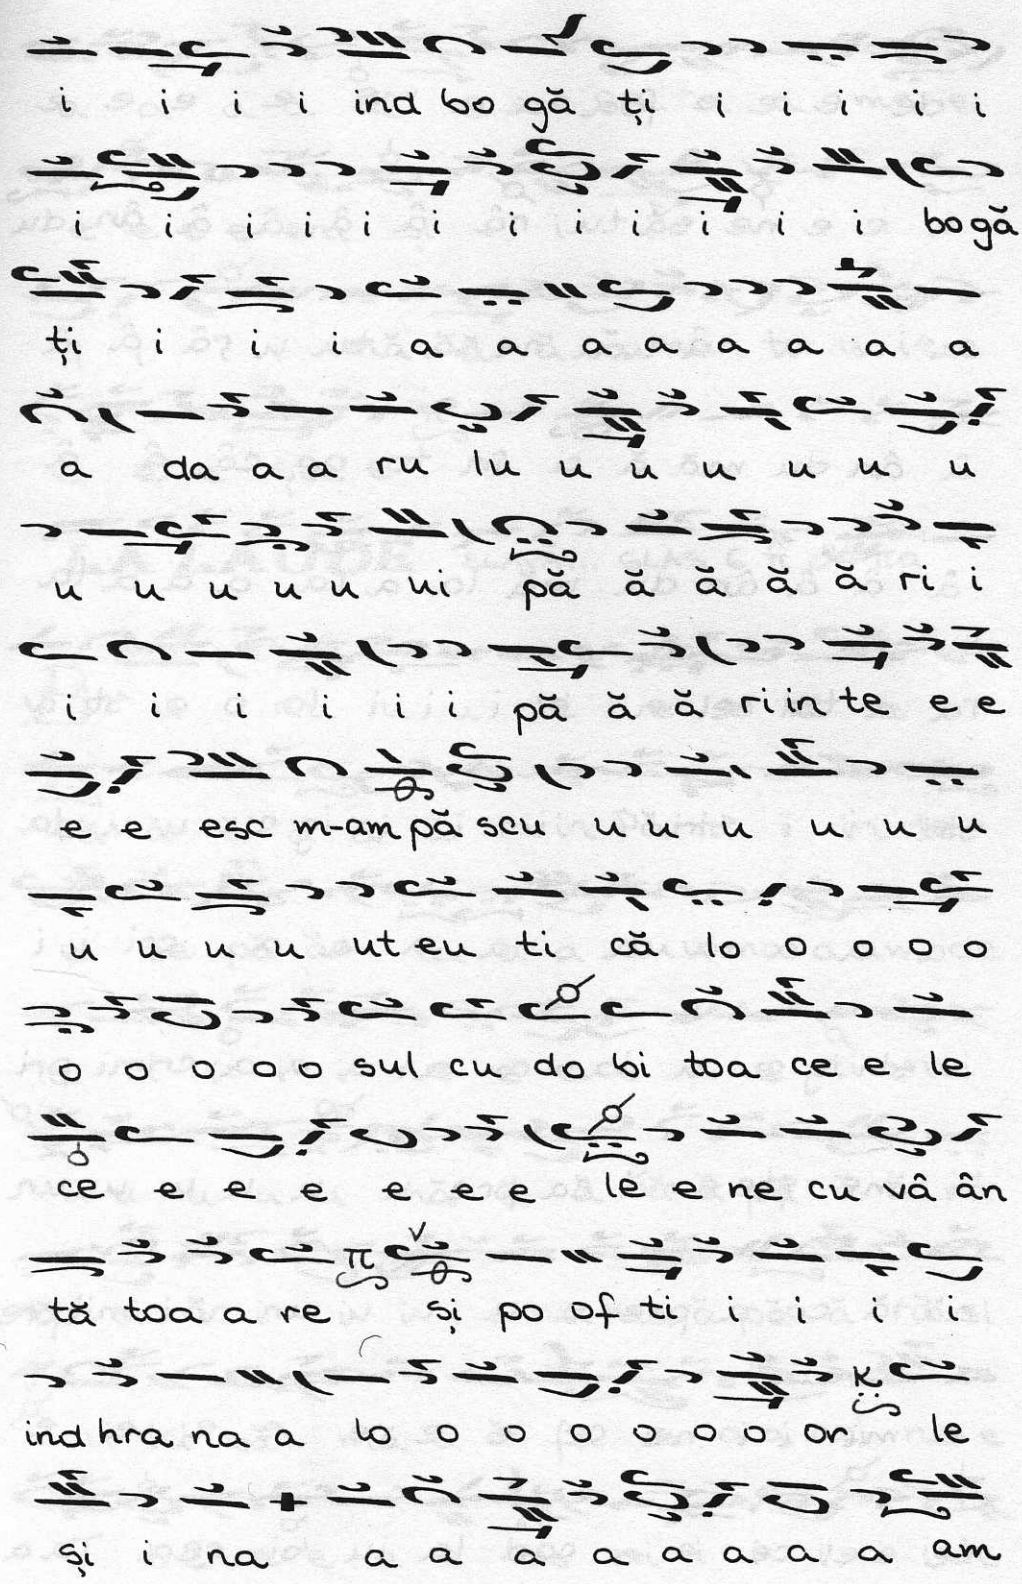 i i i i ind bo gă ți i i i i i
i i i i i i i i i i i i bo gă
ți i i i a a a a a a a a
a da a a ru lu u u u u u u
u u u u u ui pă ă ă ă ă ri i
i i i i i i pă ă ă ri in te e e
e e esc m-am pă scu u u u u u u
u u u u ut eu ti că lo o o o o
o o o o o sul cu do bi toa ce e le
ce e e e e e e le e ne cu vâ ân
tă toa a re π și po of ti i i i i
ind hra na a lo o o o o o o or le
și i na a a a a a a a a am